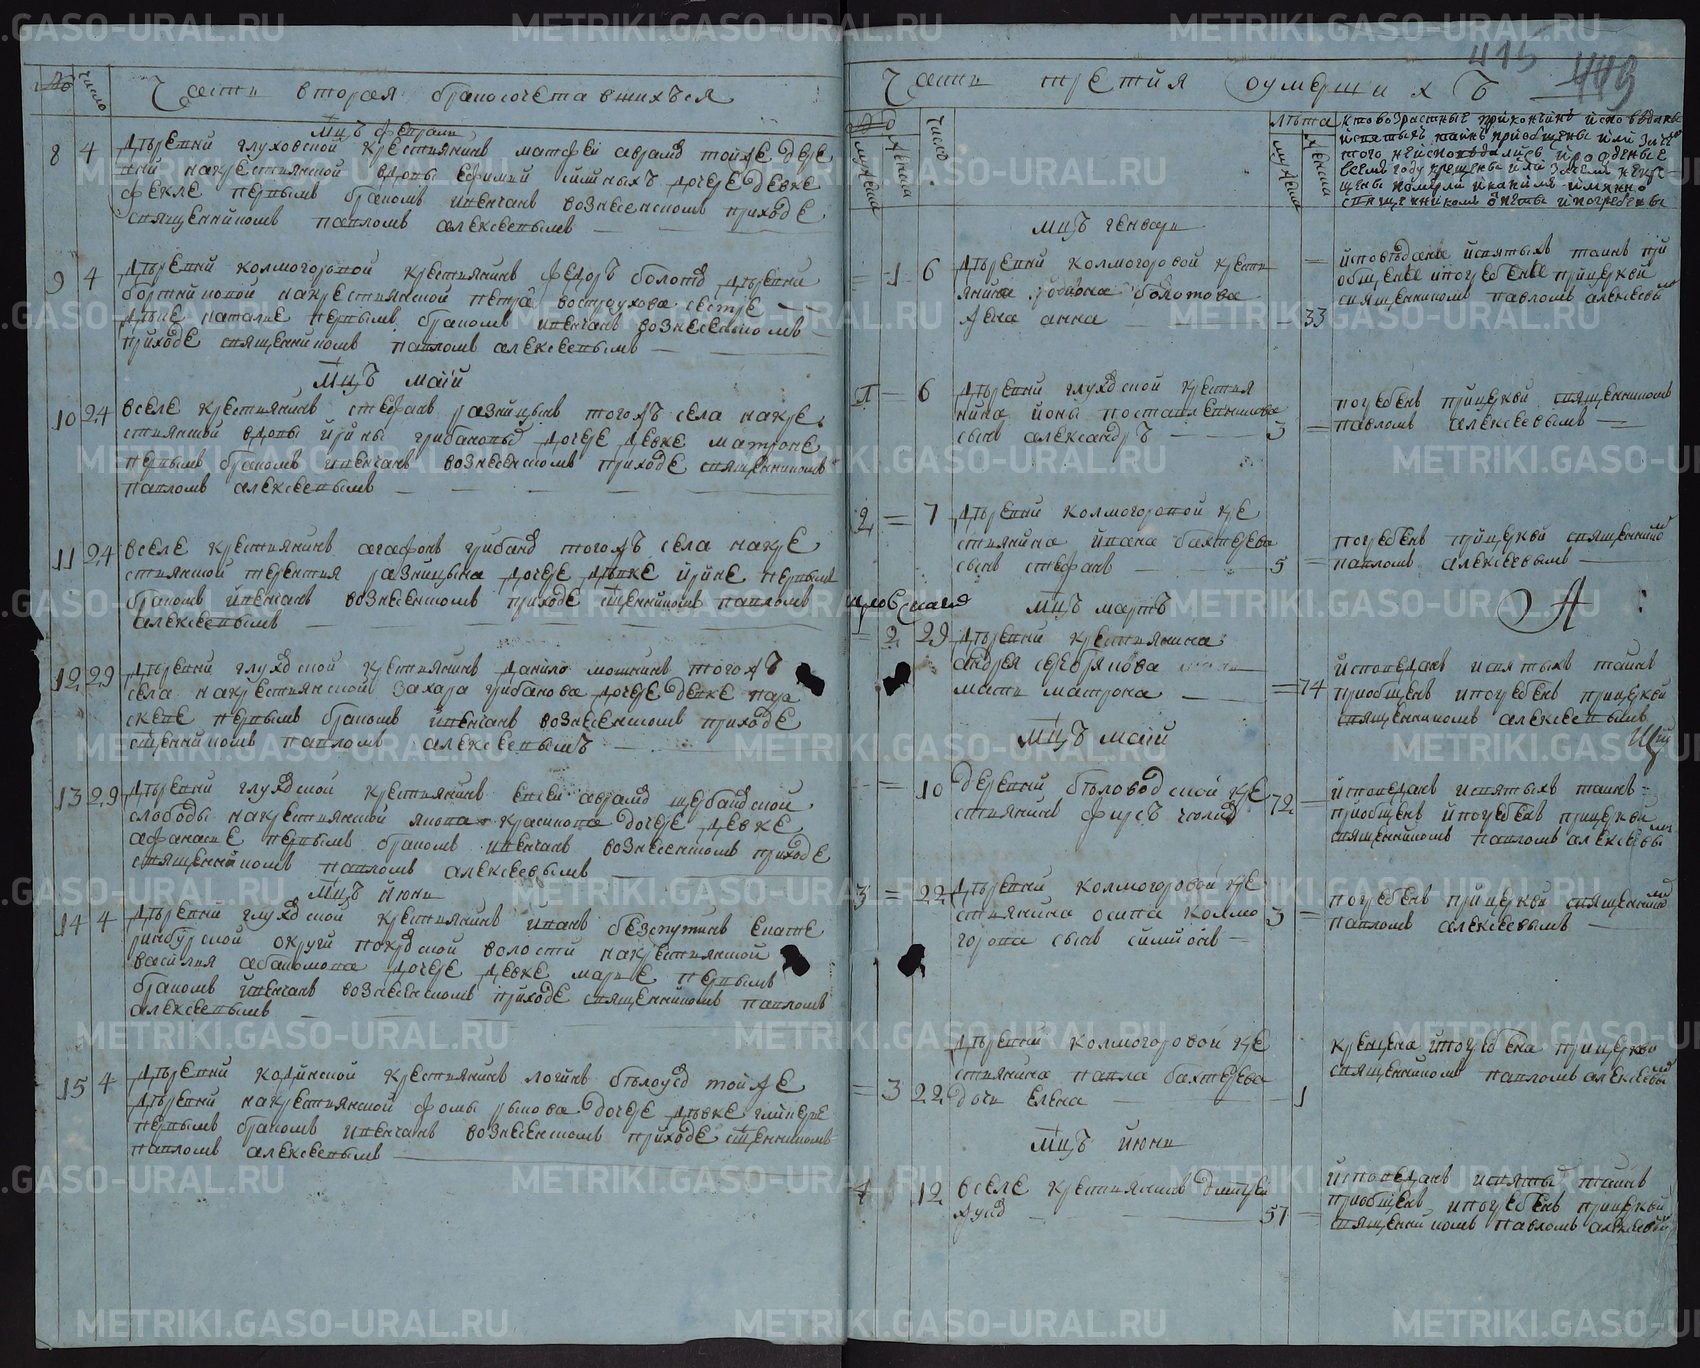 Части вторая бракосочетавшихъся
№ число
Мцъ февраля
8 4 дѣревни глуховской крестиянинъ матфей аврамов тойже дере
вни накрестиянской вдовы ефимии дочере девке
фекле первымъ бракомъ ивенчанъ вознесенскомъ приходе
священникомъ павломъ алексеевымъ
9 4 дѣревни колмогоровой крестиянинъ федоръ болотов дѣревни
накрестиянской петра востроухова сестре
девке наталие первымъ бракомъ ивенчанъ вознесенскомъ
приходе священникомъ павломъ алексеевымъ
Мцъ маия
10 24 вселе крестиянинъ стефанъ разницынъ тогожъ села накре
стиянской вдовы ирины грибановы дочере девке матроне
первымъ бракомъ ивенчанъ вознесенскомъ приходе священникомъ
павломъ алексеевымъ
11 24 вселе крестиянинъ агафонъ грибанов тогожъ села накре
стиянской терентия разницына дочере девке ирине первымъ
бракомъ ивенчанъ вознесенскомъ приходе сщенникомъ павломъ
алексеевымъ
12 29 дѣревни глуховской крестиянинъ данило мошнинъ тогожъ
села накрестиянской захара грибанова дочере девке пара
скеве первымъ бракомъ ивенчанъ вознесенскомъ приходе
сщенникомъ павломъ алексеевымъ
13 29 дѣревни глуховской крестиянинъ евсей аврамов щербаковской
слободы накрестиянской якова красикова дочере девке
афанасие первымъ бракомъ ивенчанъ вознесенскомъ приходе
священникомъ павломъ алексеевымъ
Мцъ июня
14 4 дѣревни глуховской крестиянинъ иванъ безпутинъ екате
ринбурской округи покровской волости накрестиянской
василия абакумова дочере девке марие первымъ
бракомъ ивенчанъ вознесенскомъ приходе священникомъ павломъ
алексеевымъ
15 4 дѣревни кодинской крестиянинъ логинъ бѣлоусов тойже
дѣревни накрестиянской фомы рыкова дочере девке гликерие
первымъ бракомъ ивенчанъ вознесенскомъ приходе сщенникомъ
павломъ алексеевымъ
415 449
Части третия оумершихъ
№ мужеска женска число
лѣта мужеска женска
кто возрастные приконьчинѣ исповеданы
исвятыхъ таинъ приобщены или зачемъ
того неисповедались ирожденые
всемъ году крещены или зачемъ некре-
щены померли иканиме имянно
священникомъ отпеты ипогребены
Мцъ генваря
= 1 6 дѣревни колмогоровой крести
янина федора болотова
жена анна 33
исповѣдана исвятыхъ таинъ при
общена ипогребена прицеркви
священникомъ павломъ алексеевым
1 = 6 дѣревни глуховской крестия
нина ионы постовленникова
сынъ александръ 3 =
погребенъ прицеркви священникомъ
павломъ алексеевымъ
2 = 7 дѣревни колмогоровой кре
стиянина ивана бахтерева
сынъ стефанъ 5 =
погребенъ прицеркви священником
павломъ алексеевымъ
Мцъ мартъ
= 2 29 дѣревни крестиянина
андрея серебрякова
мати матрона = 74
исповеданъ исвятыхъ таинъ
приобщенъ ипогребенъ прицеркви
священникомъ алексеевымъ
Мцъ маия
= 10 деревни бѣловодской кре
стиянинъ фирсъ 72 =
исповеданъ исвятыхъ таинъ
приобщенъ ипогребенъ прицеркви
священникомъ павломъ алексеевым
3 = 22 дѣревни колмогоровой кре
стиянина осипа колмо
горова сынъ симионъ 3 =
погребенъ прицеркви священником
павломъ алексеевымъ
= 3 22 дѣревни колмогоровой кре
стиянина павла бахтерева
дочи елена 1
крещена ипогребена прицеркви
священникомъ павломъ алексеевым
Мцъ июня
4 12 вселе крестиянинъ дмитреи
57 =
исповеданъ исвятыхъ таинъ
приобщенъ ипогребенъ прицеркви
священникомъ павломъ алексеевым
METRIKI.GASO-URAL.RU